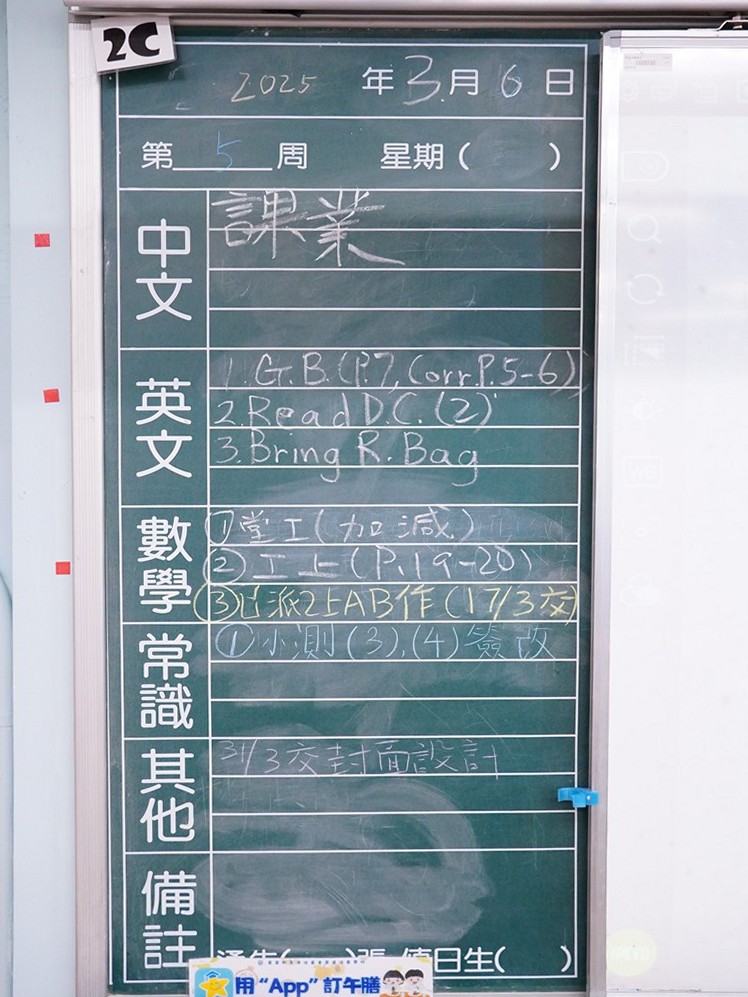 2C
2025 年 3 月 6 日
第 5 周 星期 ( )
中文
課業
英文
1. G.B. (P.7, Corr.P.5-6)
2. Read D.C. (2)
3. Bring R. Bag
數學
① 堂工 (加減)
② 工上 (P.19-20)
③ 已派25AB作 (17/3交)
常識
① 小測 (3), (4) 簽改
其他
31/3交封面設計
備註
日生( )
用 “App” 訂午膳